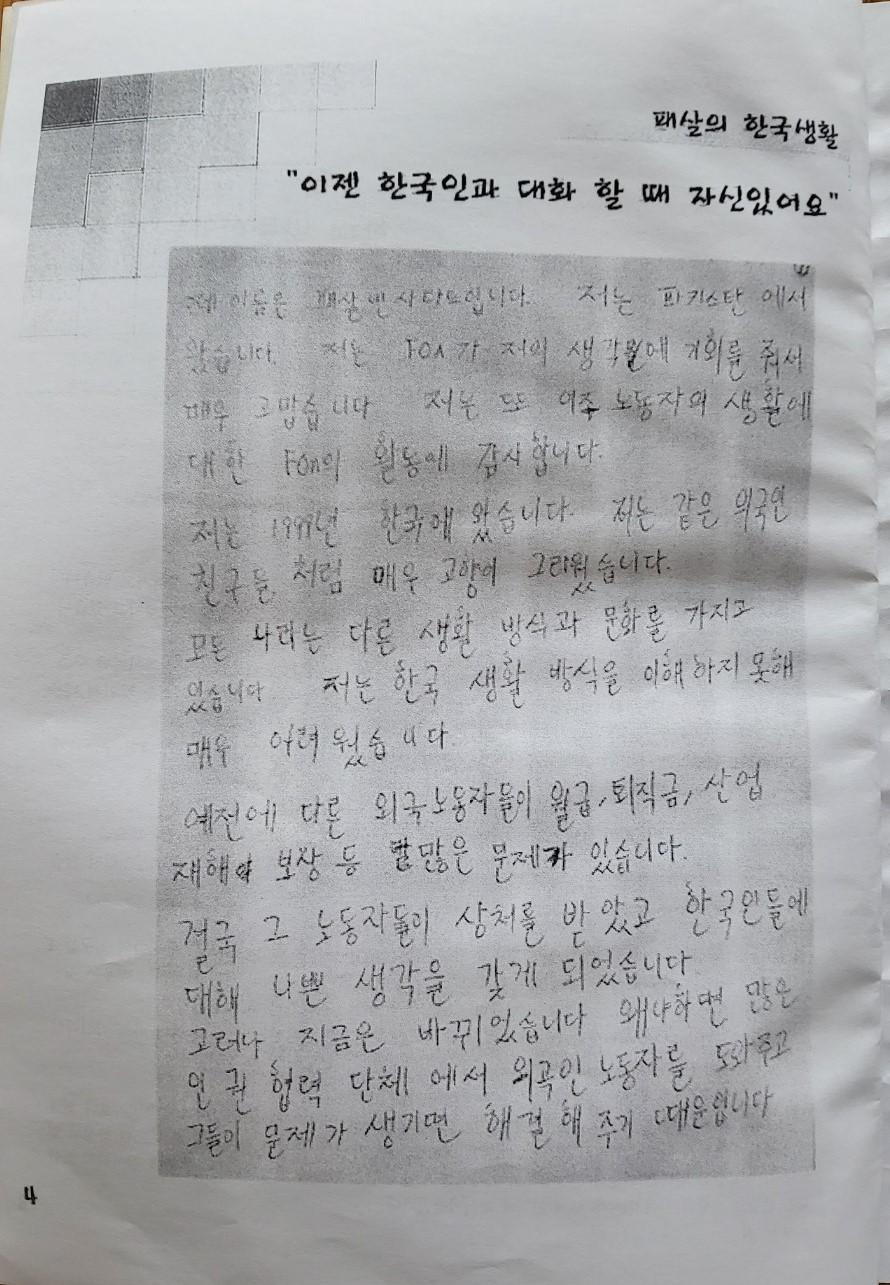 패살의 한국생활
"이젠 한국인과 대화 할 때 자신있어요"
제 이름은 패살빈 입니다. 저는 파키스탄 에서
왔습니다. 저는 FOn가 저의 기회를 줘서
매우 고맙습니다 저는 또 이주 노동자의 생활에
대한 FOn의 활동에 감사합니다.
저는 한국에 왔습니다. 저는 같은 외국인
친구들 처럼 매우 고향이 그리웠습니다.
모든 나라는 다른 생활 방식과 문화를 가지고
있습니다 저는 한국 생활 방식을 이해하지 못해
매우 어려웠습니다.
예전에 다른 외국노동자들이 월급, 퇴직금, 산업
재해 보상 등 많은 문제가 있습니다.
결국 그 노동자들이 상처를 받았고 한국인들에
대해 나쁜 생각을 갖게 되었습니다
고러나 지금은 바뀌었습니다 왜냐하면 많은
인권 협력 단체에서 외곡인 노동자를 도와주고
그들이 문제가 생기면 해결해 주기 때문입니다
4